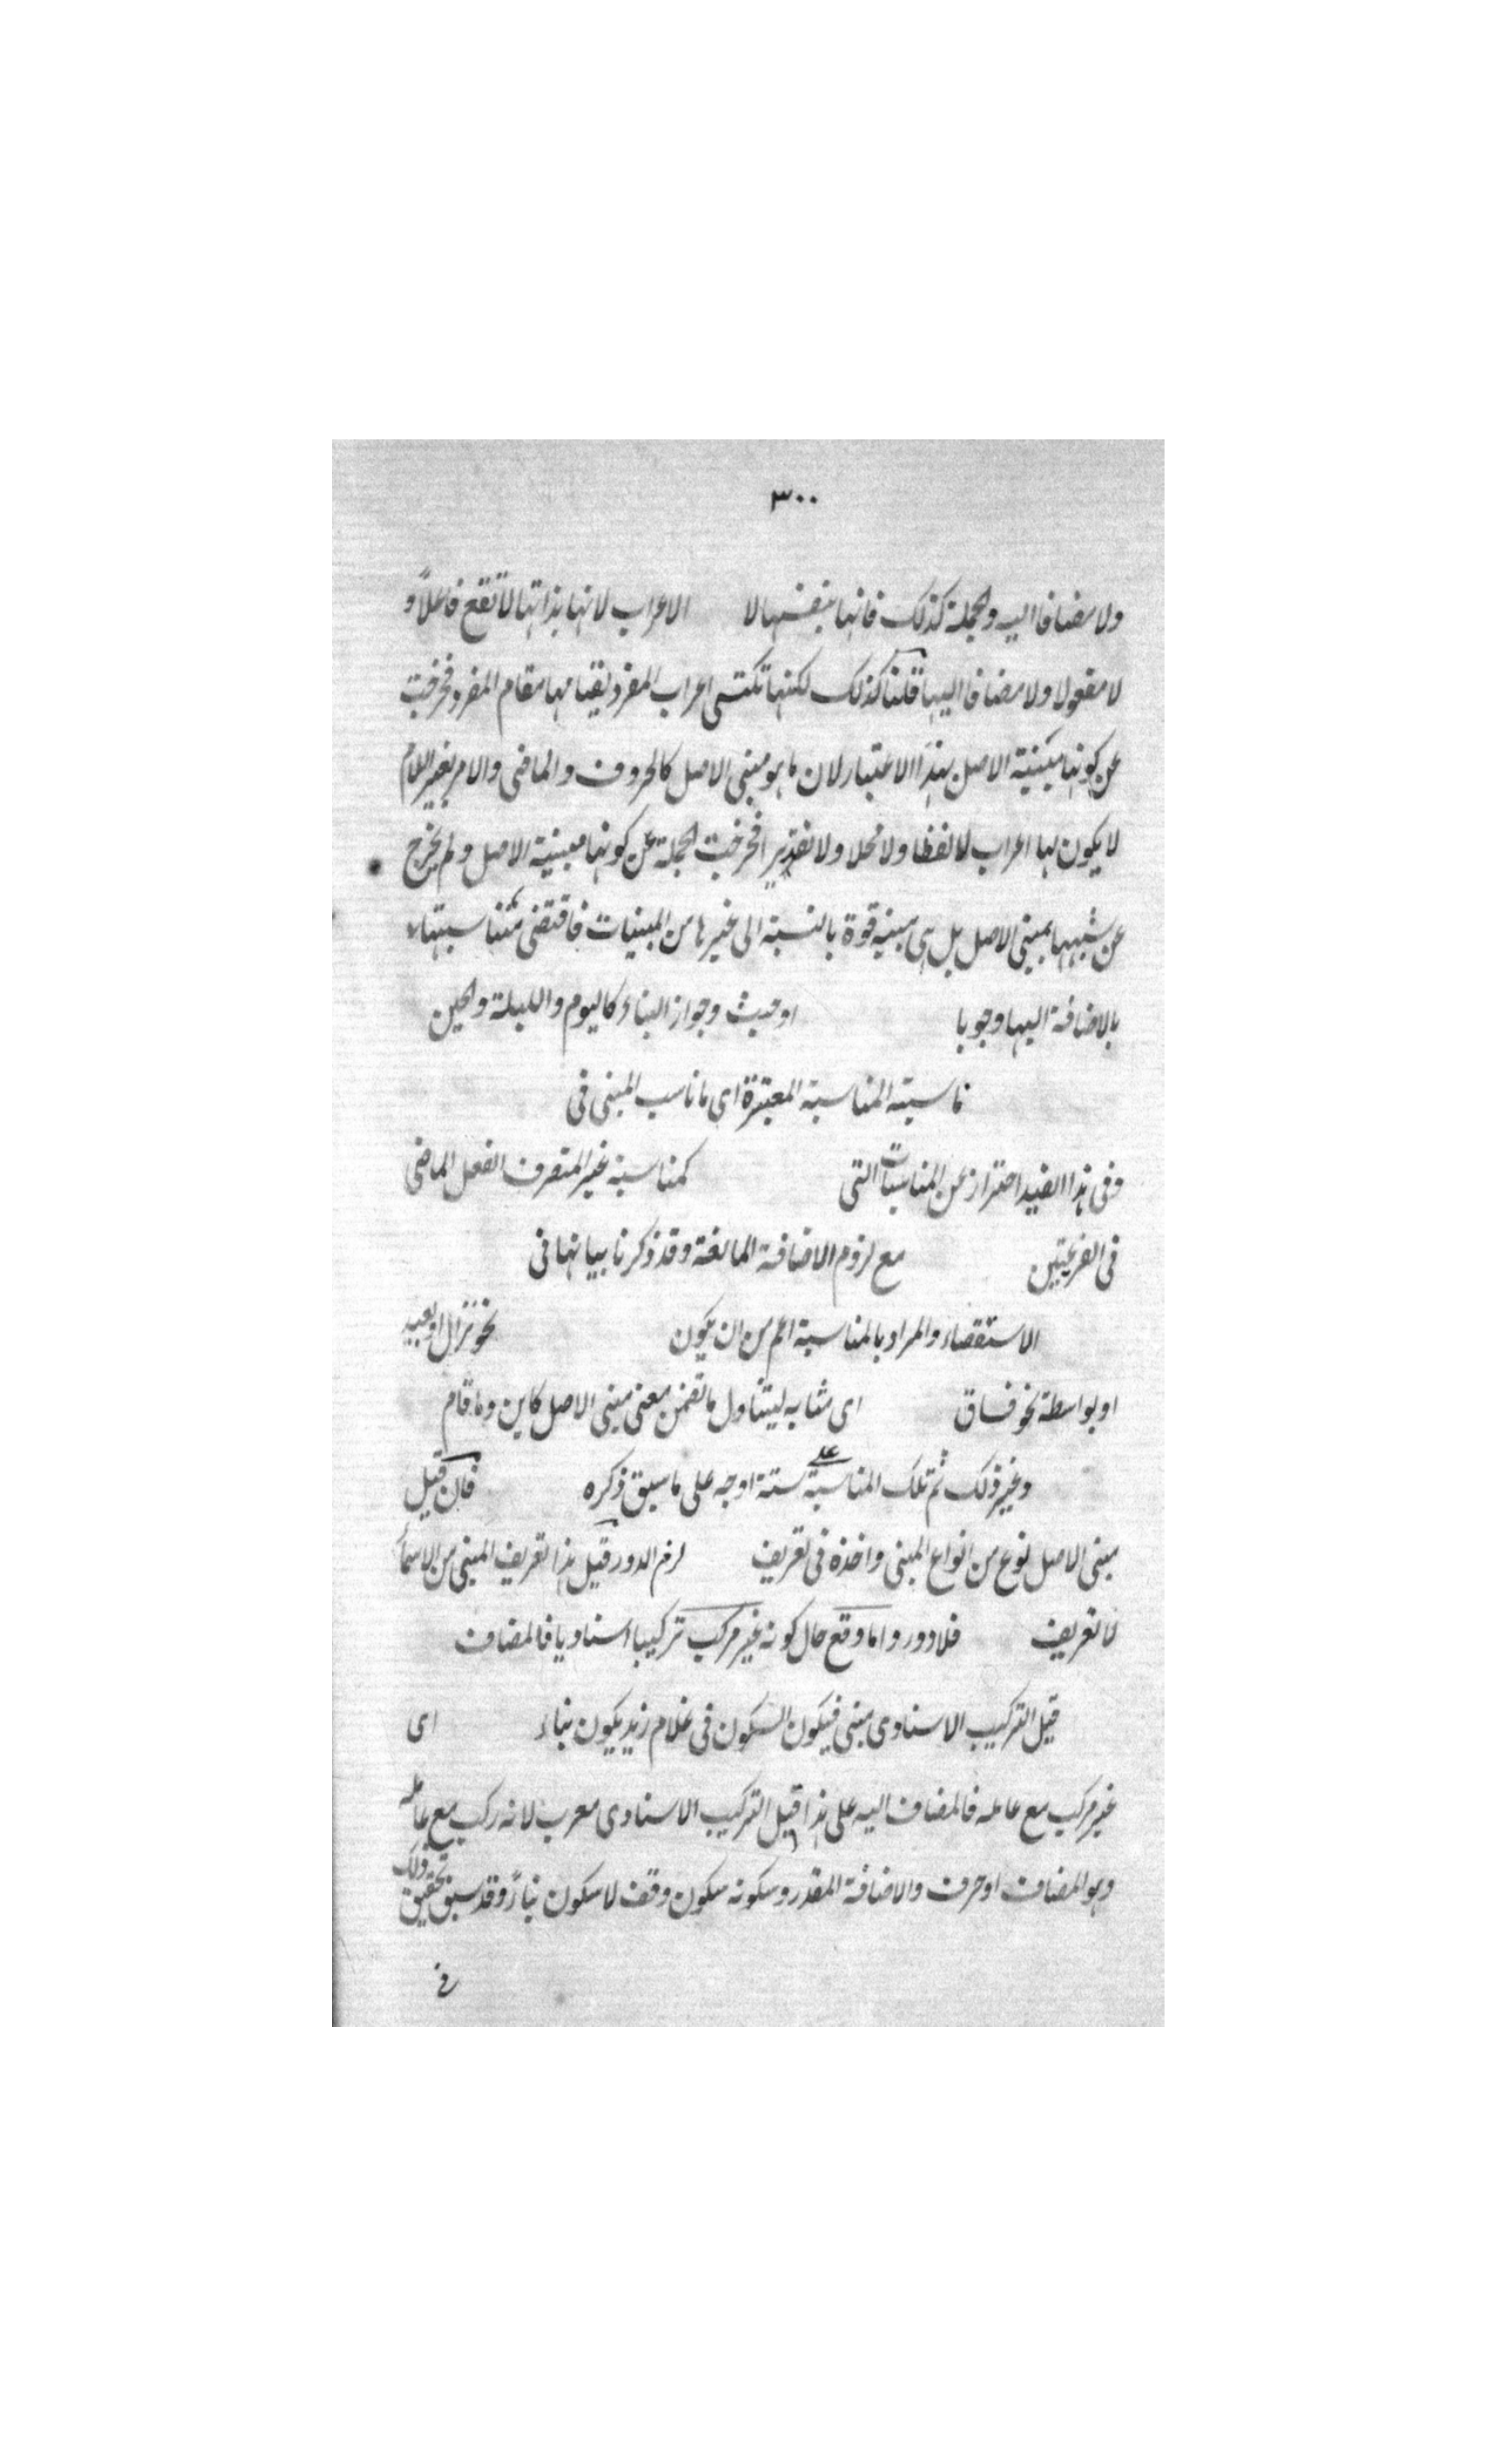 ٣٠٠
ولا مضافا اليه والجملة كذلك فانها بنفسها لا الاعراب لانها بذاتها لا تقع فاعلاً و
لا مفعولا ولا مضافا اليها قلنا كذلك لكنها تكتسى اعراب المفرد بقيامها مقام المفرد فخرجت
عن كونها مبنية الاصل بهذا الاعتبار لان ما هو مبنى الاصل كالحروف والماضى والامر بغير اللام
لا يكون لها اعراب لا لفظا ولا محلا ولا تقديرا فخرجت الجملة عن كونها مبنية الاصل ولم يخرج
عن شبهها بمبنى الاصل بل هى مبنية قوة بالنسبة الى غيرها من المبنيات فاقتضى مناسبتها
بالاضافة اليها وجوبا او حيث وجواز البناء كاليوم والليلة والحين
ناسبته المناسبة المعتبرة اى ما ناسب المبنى فى
وفى هذا القيد احتراز عن المناسبات التى كمناسبة غير المتصرف الفعل الماضى
فى الفرعيتين مع لزوم الاضافة المانعة وقد ذكرنا بيانها فى
الاستقصاء والمراد بالمناسبة اعم من ان يكون نحو نزال او بعيد
او بواسطة نحو فساق اى مشابه ليتناول ما تضمن معنى مبنى الاصل كاين وما قام
وغير ذلك ثم تلك المناسبة على ستة اوجه على ما سبق ذكره فان قيل
مبنى الاصل نوع من انواع المبنى واخذه فى تعريف لزم الدور قيل هذا تعريف المبنى من الاسماء
لا تعريف فلا دور واما وقع حال كونه غير مركب تركيبا اسناديا فالمضاف
قبل التركيب الاسنادى مبنى فيكون السكون فى غلام زيد يكون بناء اى
غير مركب مع عامله فالمضاف اليه على هذا قبل التركيب الاسنادى معرب لانه ركب مع عامله
وهو المضاف او حرف والاضافة المقدر وسكونه سكون وقف لا سكون بناءً وقد سبق تحقيق ذلك
فى